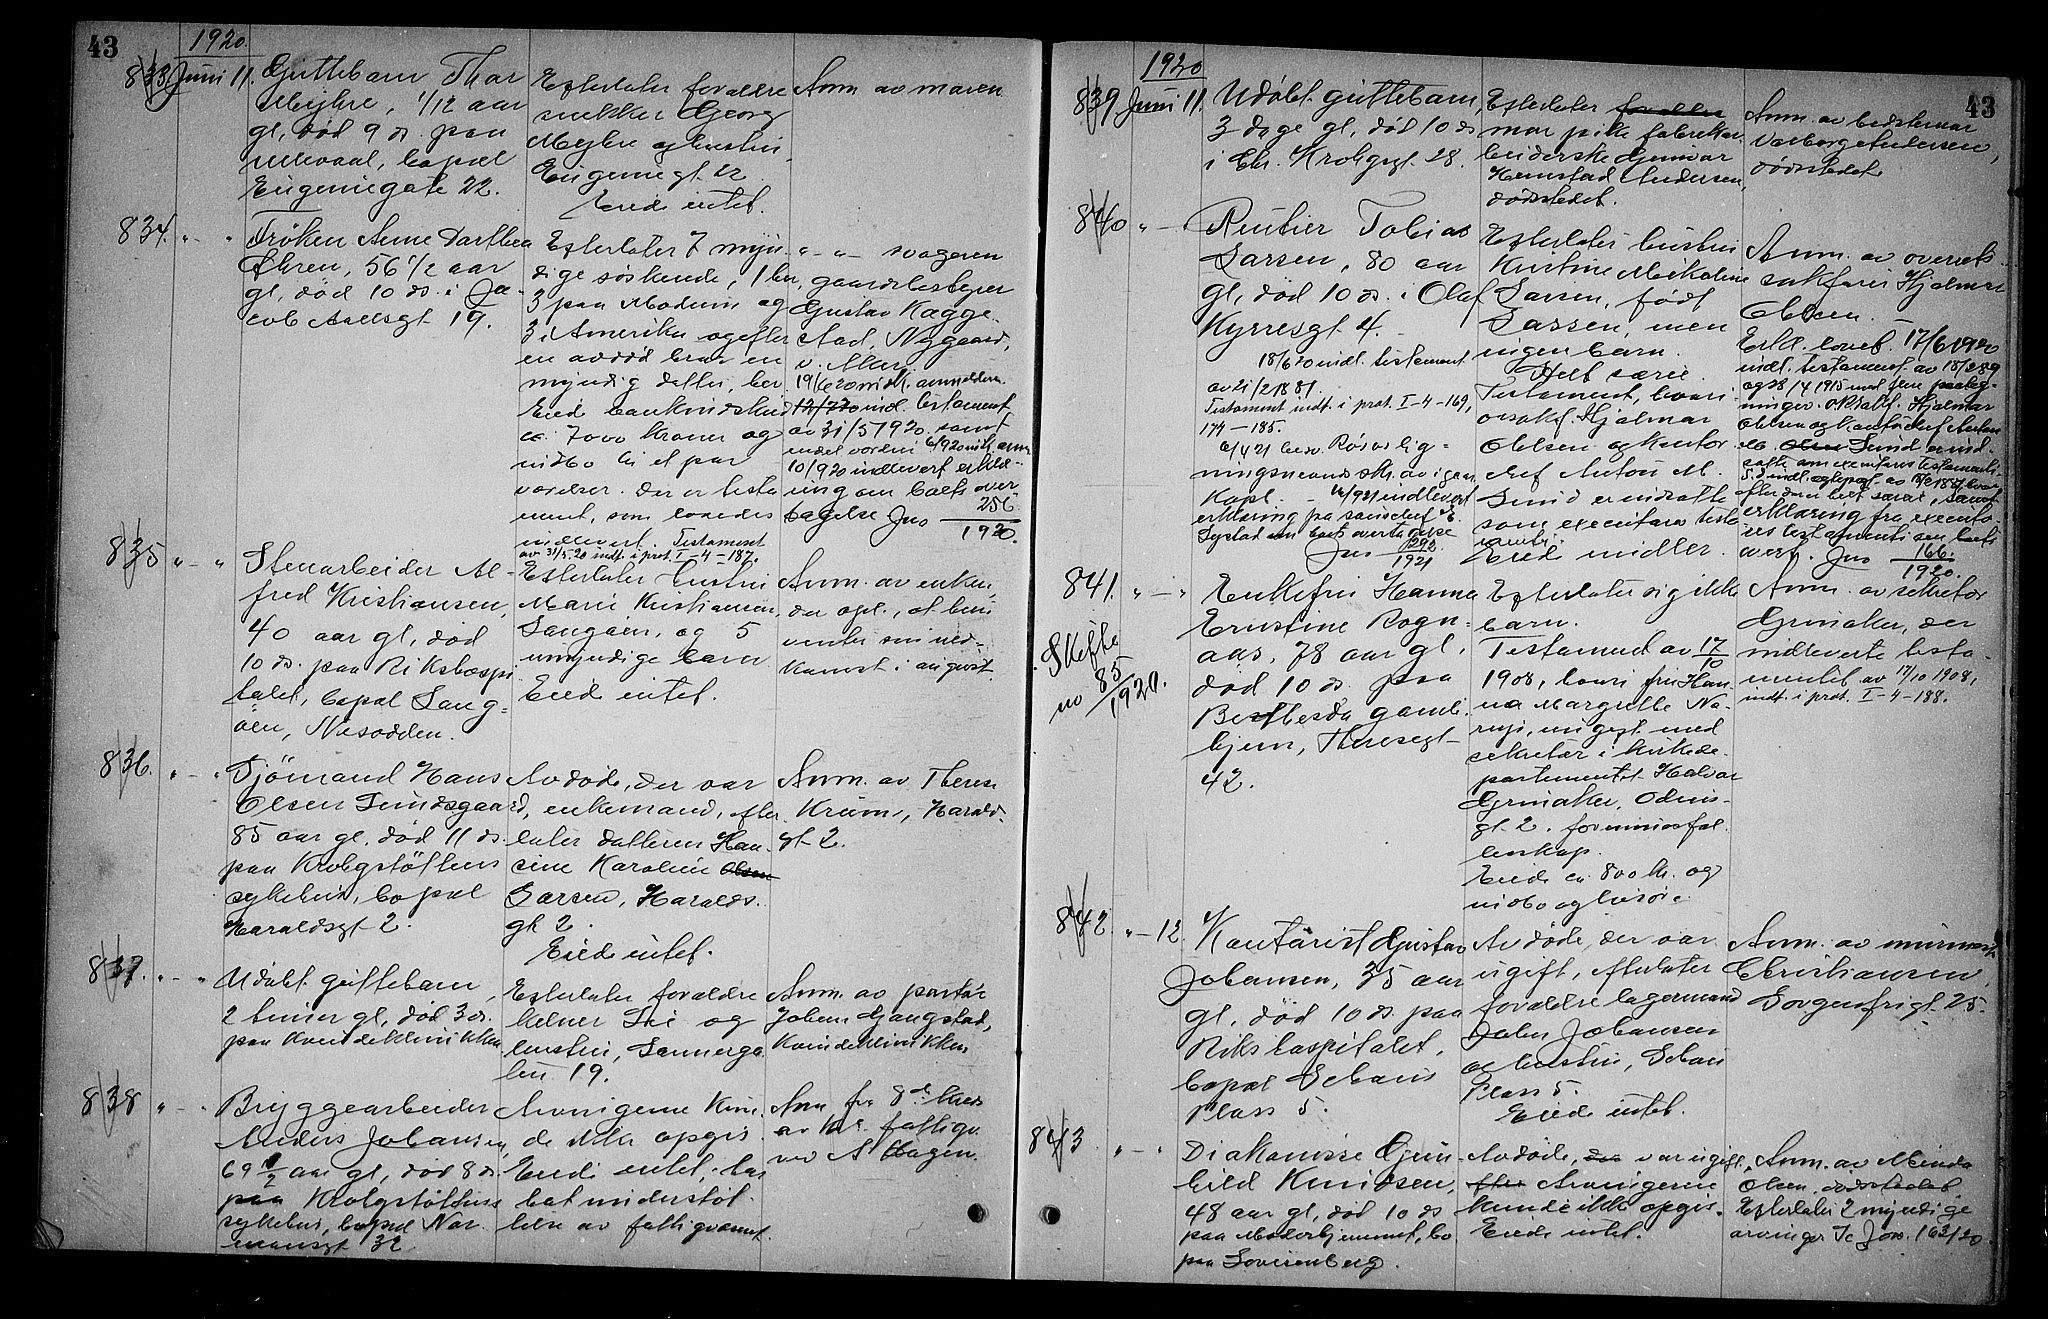 43
1920.
833 Juni 11.
Guttebarn Thor
Mejlre, 1/12 aar
gl, død 9 ds. paa
Ullevaal, bopæl
Eugeniegate 22.
Efterlater forældre
snekker Georg
Mejlre og hustru,
Eugeniegt 22
Eied intet.
Anm. av moren
834. " — "
Frøken Anne Dorthea
Ahren, 56 1/2 aar
gl, død 10 ds. i Ja-
cob Aallsgt 19.
Efterlater 7 myn-
dige søskende, 1 her,
3 paa Modum og
3 i Amerika og efter
en avdød bror en
myndig datter, her
Eied bankindskud
ca. 7000 kroner og
indbo til et par
værelser. Der er testa
ment, som loves
indlevert. Testament
av 31/5.20 indt. i prot. I-4-187.
" — " — svogeren
gaardsbestyrer
Gustav Kagge-
stad, Nygaard,
v. Aker.
19/6 20 indk. anmelderen
12/7 20 indl. testament
av 31/5 1920. samt
10/9 20 indlevert erklæ-
ring om boets over-
tagelse Jno 256
1920.
835 " — "
Stenarbeider Al-
fred Kristiansen,
40 aar gl, død
10 ds. paa Rikshospi
talet, bopæl Lang-
øen, Nesodden.
Efterlater hustru
Marie Kristiansen,
Langøen, og 5
umyndige barn
Eied intet.
Anm. av enken,
der opl., at hun
venter sin ned-
komst i august.
836. " — "
Sjömand Hans
Olsen Lundsgaard,
85 aar gl, død 11 ds.
paa Krohgstøttens
sykehus, bopæl
Haraldsgt 2.
Avdøde, der var
enkemand, efter-
later datteren Han-
sine Karoline Olsen
Larsen, Haralds-
gt 2.
Eied intet.
Anm. av Therese
Krumm, Haralds-
gt 2.
837. " — "
Udøbt guttebarn,
2 timer gl, død 3 ds.
paa Kvindeklinikken
Efterlater forældre
kelner Lie og
hustru, Sannerga-
ten 19.
Anm. av portør
Johan Gangstad,
Kvindeklinikken
838 " — "
Bryggearbeider
Anders Johansen,
69 1/2 aar gl, død 8 ds.
paa Krohgstøttens
sykehus, bopæl Nor-
mansgt 32
Arvingerne kun-
de ikke opgis.
Eied intet, har
hat understøt-
telse av fattigvæsenet.
Anm fra 8de kreds
av Kr. fattigv.
ved A Hagen.
1920
43
839 Juni 11.
Udøbt guttebarn,
3 dage gl, død 10 ds
i Chr. Krohgsgt. 28.
Efterlater forældre
mor pike fabrikar-
beiderske Gunvor
Hemstad Andersen,
dødsstedet.
Anm. av bedstemor
Valborg Andersen,
dødsstedet.
840 " —
Rentier Tobias
Larsen, 80 aar
gl, død 10 ds. i Olaf
Kyrresgt 4.
18/6 20 indl. testament
av 21/2 1881.
Testament indt. i prot. I-4-169,
174-185.
6/4 21 besv. Røros lig-
ningsnevnds skr. av i gaar
Kopi. — 14/9 21 indlevert
erklæring på
om boets overtagelse
Jno 292.
1921
Efterlater hustru
Kristine Mikaline
Larsen, født
Lassen, men
ingen barn.
Helt særeie.
Testament, hvori
orsakf. Hjalmar
Olsen og kontor
chef Anton M.
Lund er indsatte
som executores testa
menti.
Eied midler.
Anm. av overrets-
sakfører Hjalmar
Olsen.
Erkl. lovet. 17/6 1920
indl. testament av 18/2 89
og 28/4 1915 med flere paateg-
ninger. O.R.sakf. Hjalmar
Olsen og Kontorchef Anton
M. Olsen Lund er ind-
satte som executores testamenti
erklæring fra executo-
res testamenti om boets
overt. Jno 166.
1920.
841. " — "
Skifte
no 85
1920.
Enkefru Hanna
Ernstine Rogn-
aas, 78 aar gl,
død 10 ds. paa
Bethesda gamle
hjem, Theresegt
42.
Efterlater sig ikke
barn.
Testament av 17/10
1908, hvori fru Han-
na Margrethe Na-
rup, nu gift med
sekretær i kirkede-
partementet Halvor
Grinaker, Odins-
gt 2. formuesfæl-
lesskap.
Eied ca 800 kr. og
indbo og løsøre.
Anm. av sekretær
Grinaker, der
indleverte testa-
mentet av 17/10 1908,
indt. i prot. I-4-188.
842. " — 12.
Kontorist Gustav
Johansen, 35 aar
gl, død 10 ds. paa
Rikshospitalet,
bopæl Schous
Plass 5.
Avdøde, der var
ugift, efterlater
forældre lagermand
John Johansen
og hustru, Schous
Plass 5.
Eied intet.
Anm. av murmest.
Christiansen,
Sorgenfrigt. 25.
843 " — "
Diakonisse Gun-
hild Knudsen,
48 aar gl, død 10 ds
paa Moderhjemmet, bo
paa Lovisenberg.
Avdøde, der var ugift,
efter Arvingerne
kunde ikke opgis.
Eied intet.
Anm. av Minda
Olsen, dødsstedet
Efterlater 2 myndige
arvinger Jc Jno. 163/20.